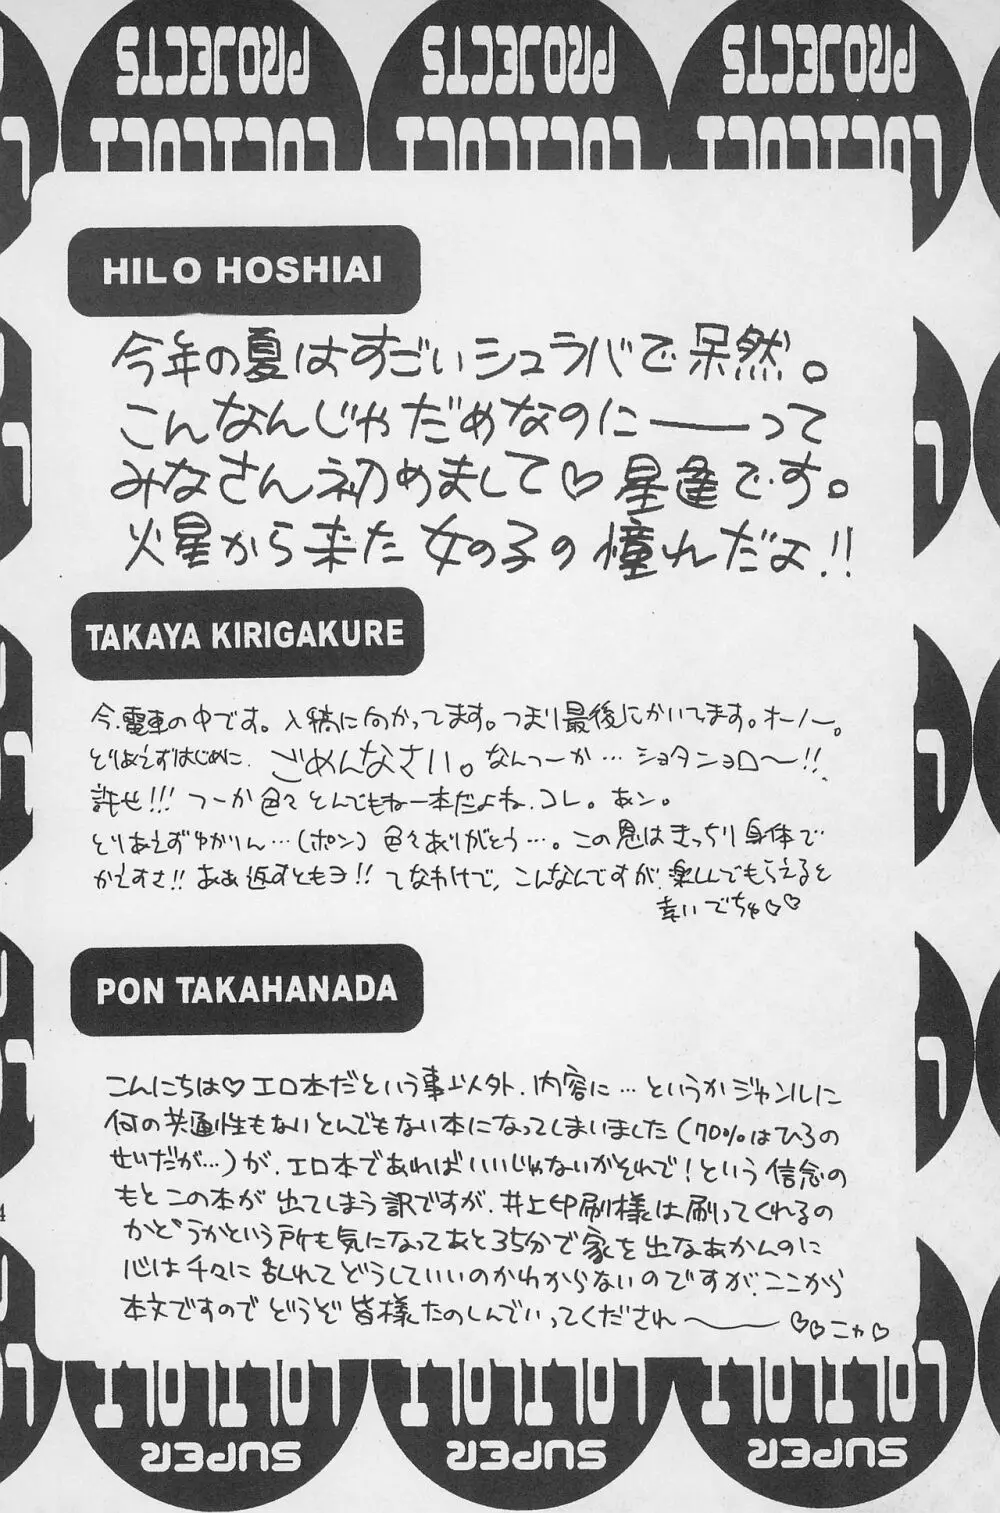 PROJECTS PROJECTS PROJECTS
LOLILOLI LOLILOLI LOLILOLI
HILO HOSHIAI
今年の夏はすごいシュラバで呆然。
こんなんじゃだめなのに——って
みなさん初めまして♡星逢です。
火星から来た女の子の憧れだよ!!
TAKAYA KIRIGAKURE
今、電車の中です。入稿に向かってます。つまり最後にかいてます。オーノー。
とりあえずはじめに、ごめんなさい。なんつーか…ショタンョロ〜!!
許せ!!! つーか色々とんでもねー本だよね、コレ。あン。
とりあえずゆかりん…(ポン)色々ありがとう…。この恩はきっちり身体で
かえすさ!! ああ返すともヨ!! てなわけで、こんなんですが、楽しんでもらえると
幸いでちゅ♡♡
PON TAKAHANADA
こんにちは♡エロ本だという事以外、内容に…というかジャンルに
何の共通性もないとんでもない本になってしまいました(70%はひろの
せいだが…)が、エロ本であればいいじゃないかそれで!という信念の
もとこの本が出てしまう訳ですが、井上印刷様は刷ってくれるの
かどうかという所も気になってあと35分で家を出なあかんのに
心は千々に乱れてどうしていいのかわからないのですが、ここから
本文ですのでどうぞ皆様たのしんでいってくだされ〜——♡♡ニャ♡
4
LOLILOLI LOLILOLI LOLILOLI
SUPER SUPER SUPER